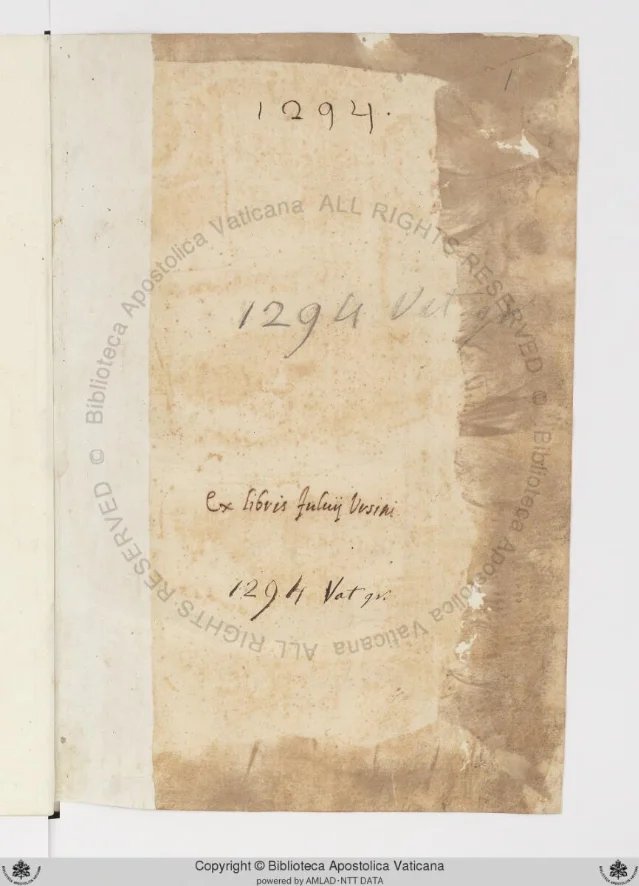 1
1294.
1294 Vat gr
Ex libris Fuluij Vrsini
1294 Vat gr.
© Biblioteca Apostolica Vaticana ALL RIGHTS RESERVED © Biblioteca Apostolica Vaticana ALL RIGHTS RESERVED
Copyright © Biblioteca Apostolica Vaticana
powered by AMLAD-NTT DATA